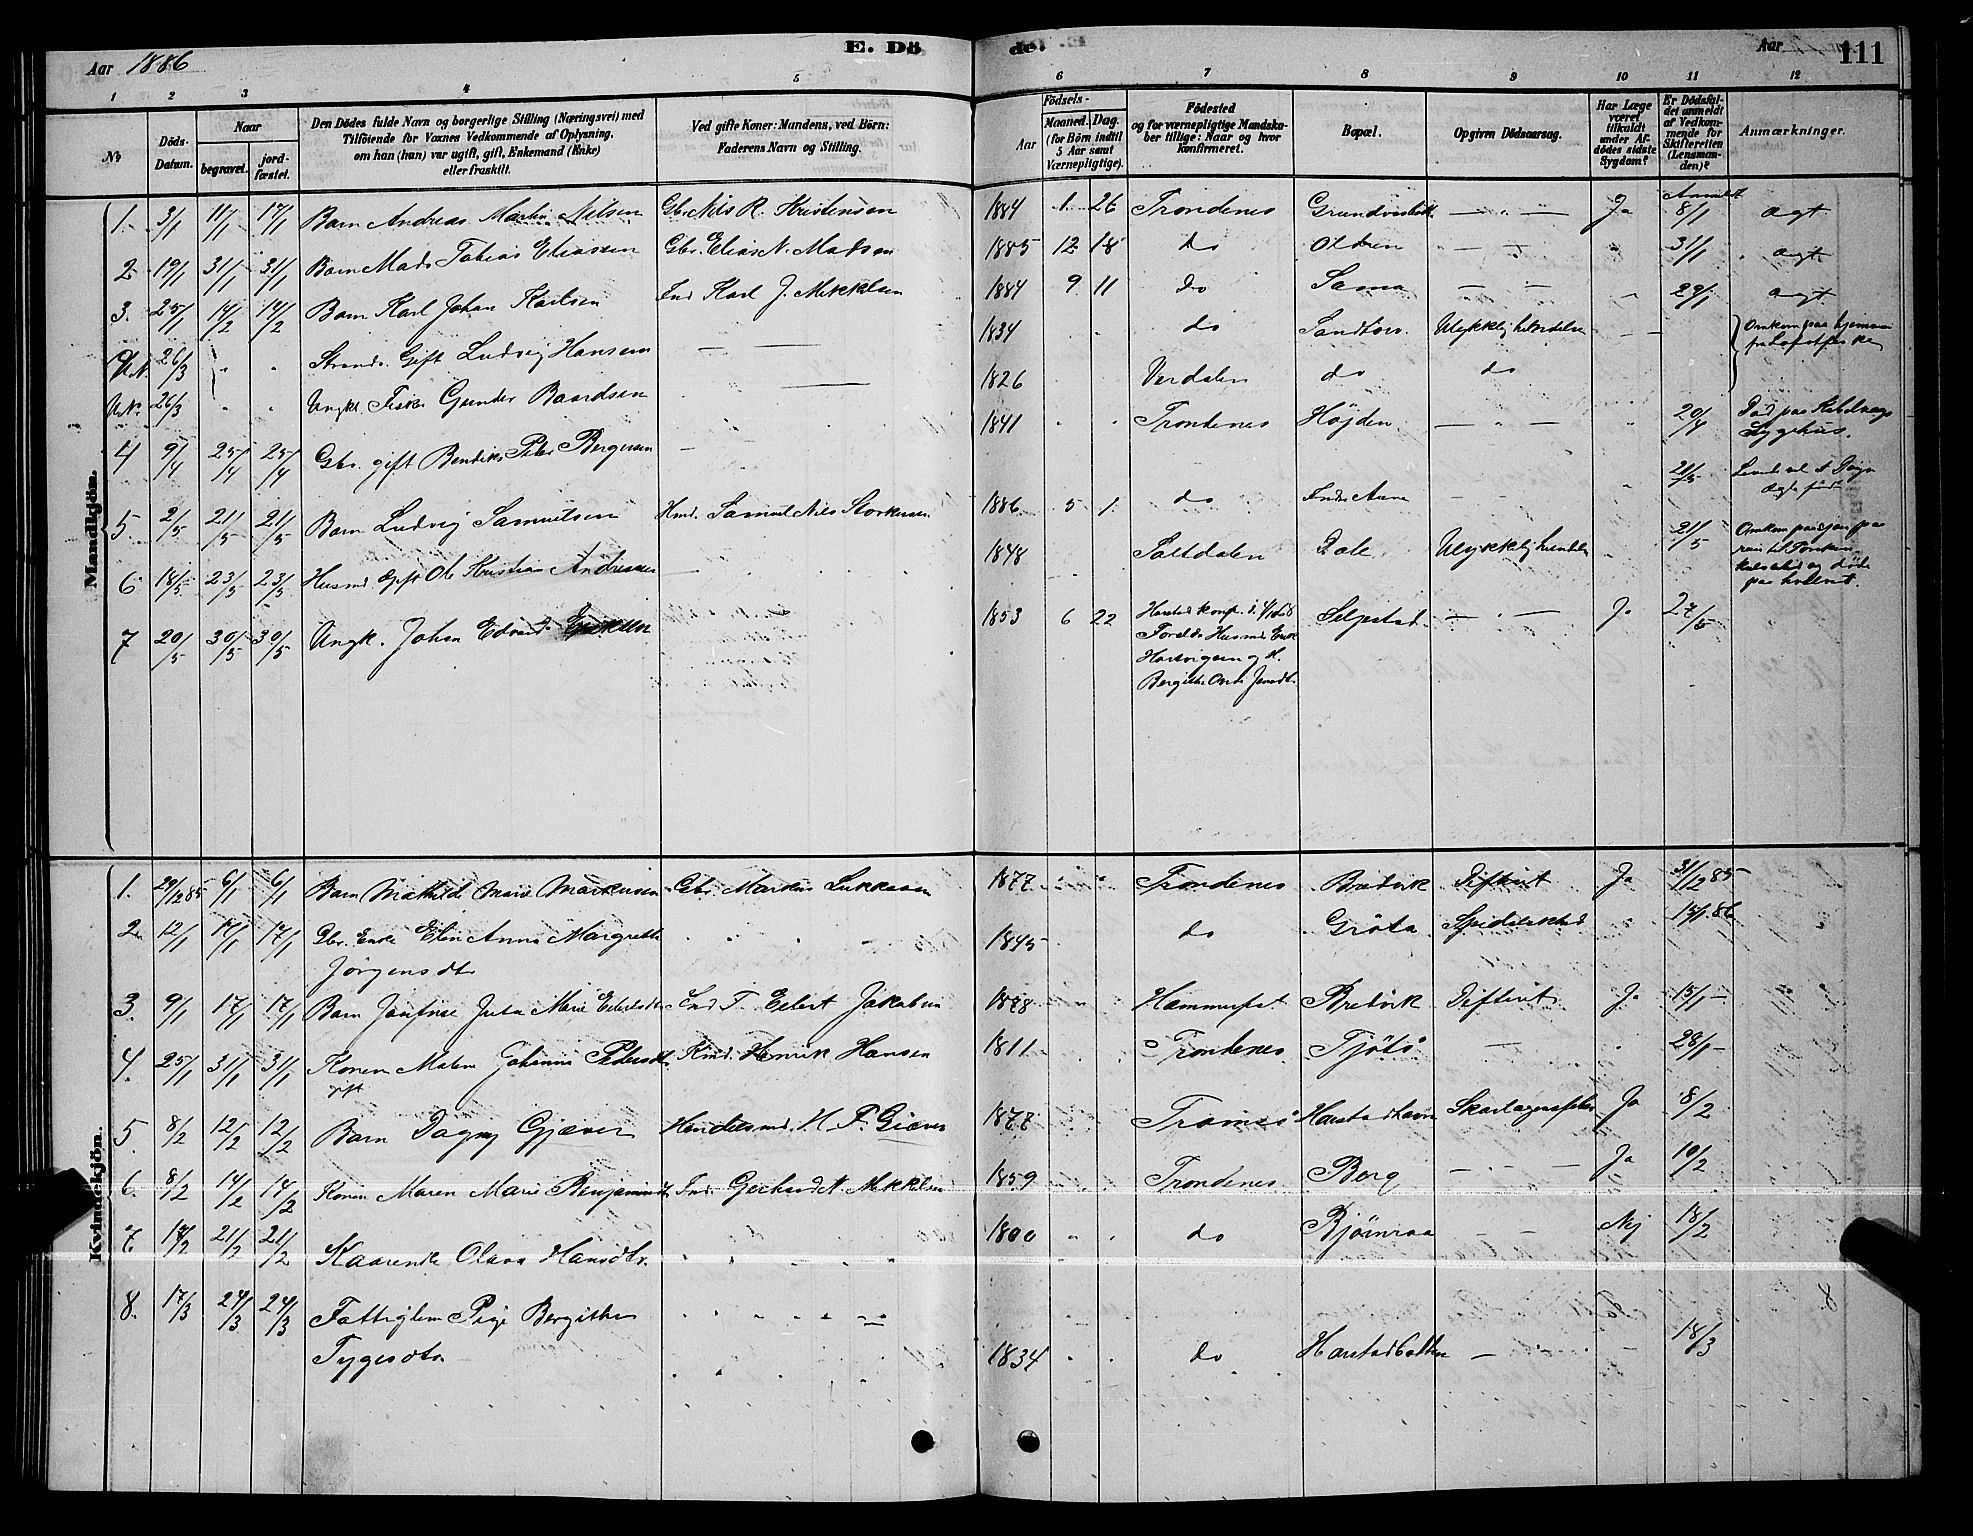 Aar 1886
E. Dö
de.
Aar
111
1 2 3 4 5 6 7 8 9 10 11 12
No
Döds-Datum.
Naar
begravet.
jord-fæstet.
Den Dödes fulde Navn og borgerlige Stilling (Næringsvei) med
Tilföiende for Voxnes Vedkommende af Oplysning,
om han (hun) var ugift, gift, Enkemand (Enke)
eller fraskilt.
Ved gifte Koner: Mandens, ved Börn:
Faderens Navn og Stilling.
Födsels-
Aar
Maaned. Dag.
(for Börn indtil
5 Aar samt
Værnepligtige).
Födested
og for værnepligtige Mandska-
ber tillige: Naar og hvor
konfirmeret.
Bopæl.
Opgiven Dödsaarsag.
Har Læge
været
tilkaldt
under Af-
dödes sidste
Sygdom?
Er Dödsfal-
det anmeldt
af Vedkom-
mende for
Skifteretten
(Lensman-
den)?
Anmærkninger.
Mandkjön.
1. 3/1 17/1 Barn Andreas Martin Nilsen Gbr. Nils R. Kristensen 1884 1 26 Trondenes Ja Anmeldt 8/1 ægt
2 19/1 31/1 31/1 Barn Mads Tobias Eliassen Gbr. Elias N. Madsen 1885 12 18 do 31/1 ægt
3. 25/1 14/2 14/2 Barn Karl Johan Karlsen Ind Karl J. Mikkelsen 1884 9 11 do Sama 29/1 ægt
26/3 Gift Ludvig Hansen 1834 do Sandtorv Ulykkelig hændelse Omkom paa hjemreise
fra Lofotfiske
26/3 Ungk. Fisker Gunder Baardsen 1826 Verdalen do do
4 9/4 25/4 25/4 Gbr. gift Bendiks Peter Bergesen 1841 Trondenes Höjden 20/4 Död paa Kabelvaag
Sygehus.
5 2/5 21/5 21/5 Barn Ludvig Samuelsen Hmd. Samuel Nils Storkersen 1886 5 1 do Indre Aune 21/5
6 18/5 23/5 23/5 Husmd gift Ole Kristian Andreassen 1848 Saltdalen Dale Ulykkelig hændelse 21/5
7 20/5 30/5 30/5 Ungk. Johan Edvard Eriksen 1853 6 22 Selpstad Ja 27/5
Foreldre Husmd Erik
Hartvigsen og H.
Kvindekjön.
1. 29/12 85 6/1 6/1 Barn Mathilde Marie Markussen Gbr Markus Lukkesen 1877 Trondenes Bredvik Difterit Ja 31/12 85
2. 12/1 17/1 17/1 Gbr. Enke Elen Anna Margrethe
Jörgensdtr 1845 do Gröta Spedalskhed 15/1 86
3. 9/1 17/1 17/1 Barn Josefine Juta Marie Eilertsdtr Ind T. Eilert Jakobsen Hammerfest Bredvik Difterit Ja 15/1
4. 25/1 31/1 31/1 Konen Malene Johanna Pedersdtr
gift Henrik Hansen 1811 Trondenes 28/1
5. 8/2 12/2 12/2 Barn Dagny Gjæver Handelsmd. H. P. Giæver 1877 Tromsö Harstadhavn Skarlagensfeber Ja 8/2
6. 8/2 14/2 14/2 Konen Maren Marie Benjaminsdtr Ind. Gerhard N. Mikkelsen 1859 Trondenes Berg Ja 10/2
7. 17/2 21/2 21/2 Kaarenke Olava Hansdtr. 1800 do Bjömraa Nej 18/2
8. 17/3 24/3 24/3 Fattiglem Pige Bergithe
Tygesdtr. 1834 do Harstadbotten 18/3